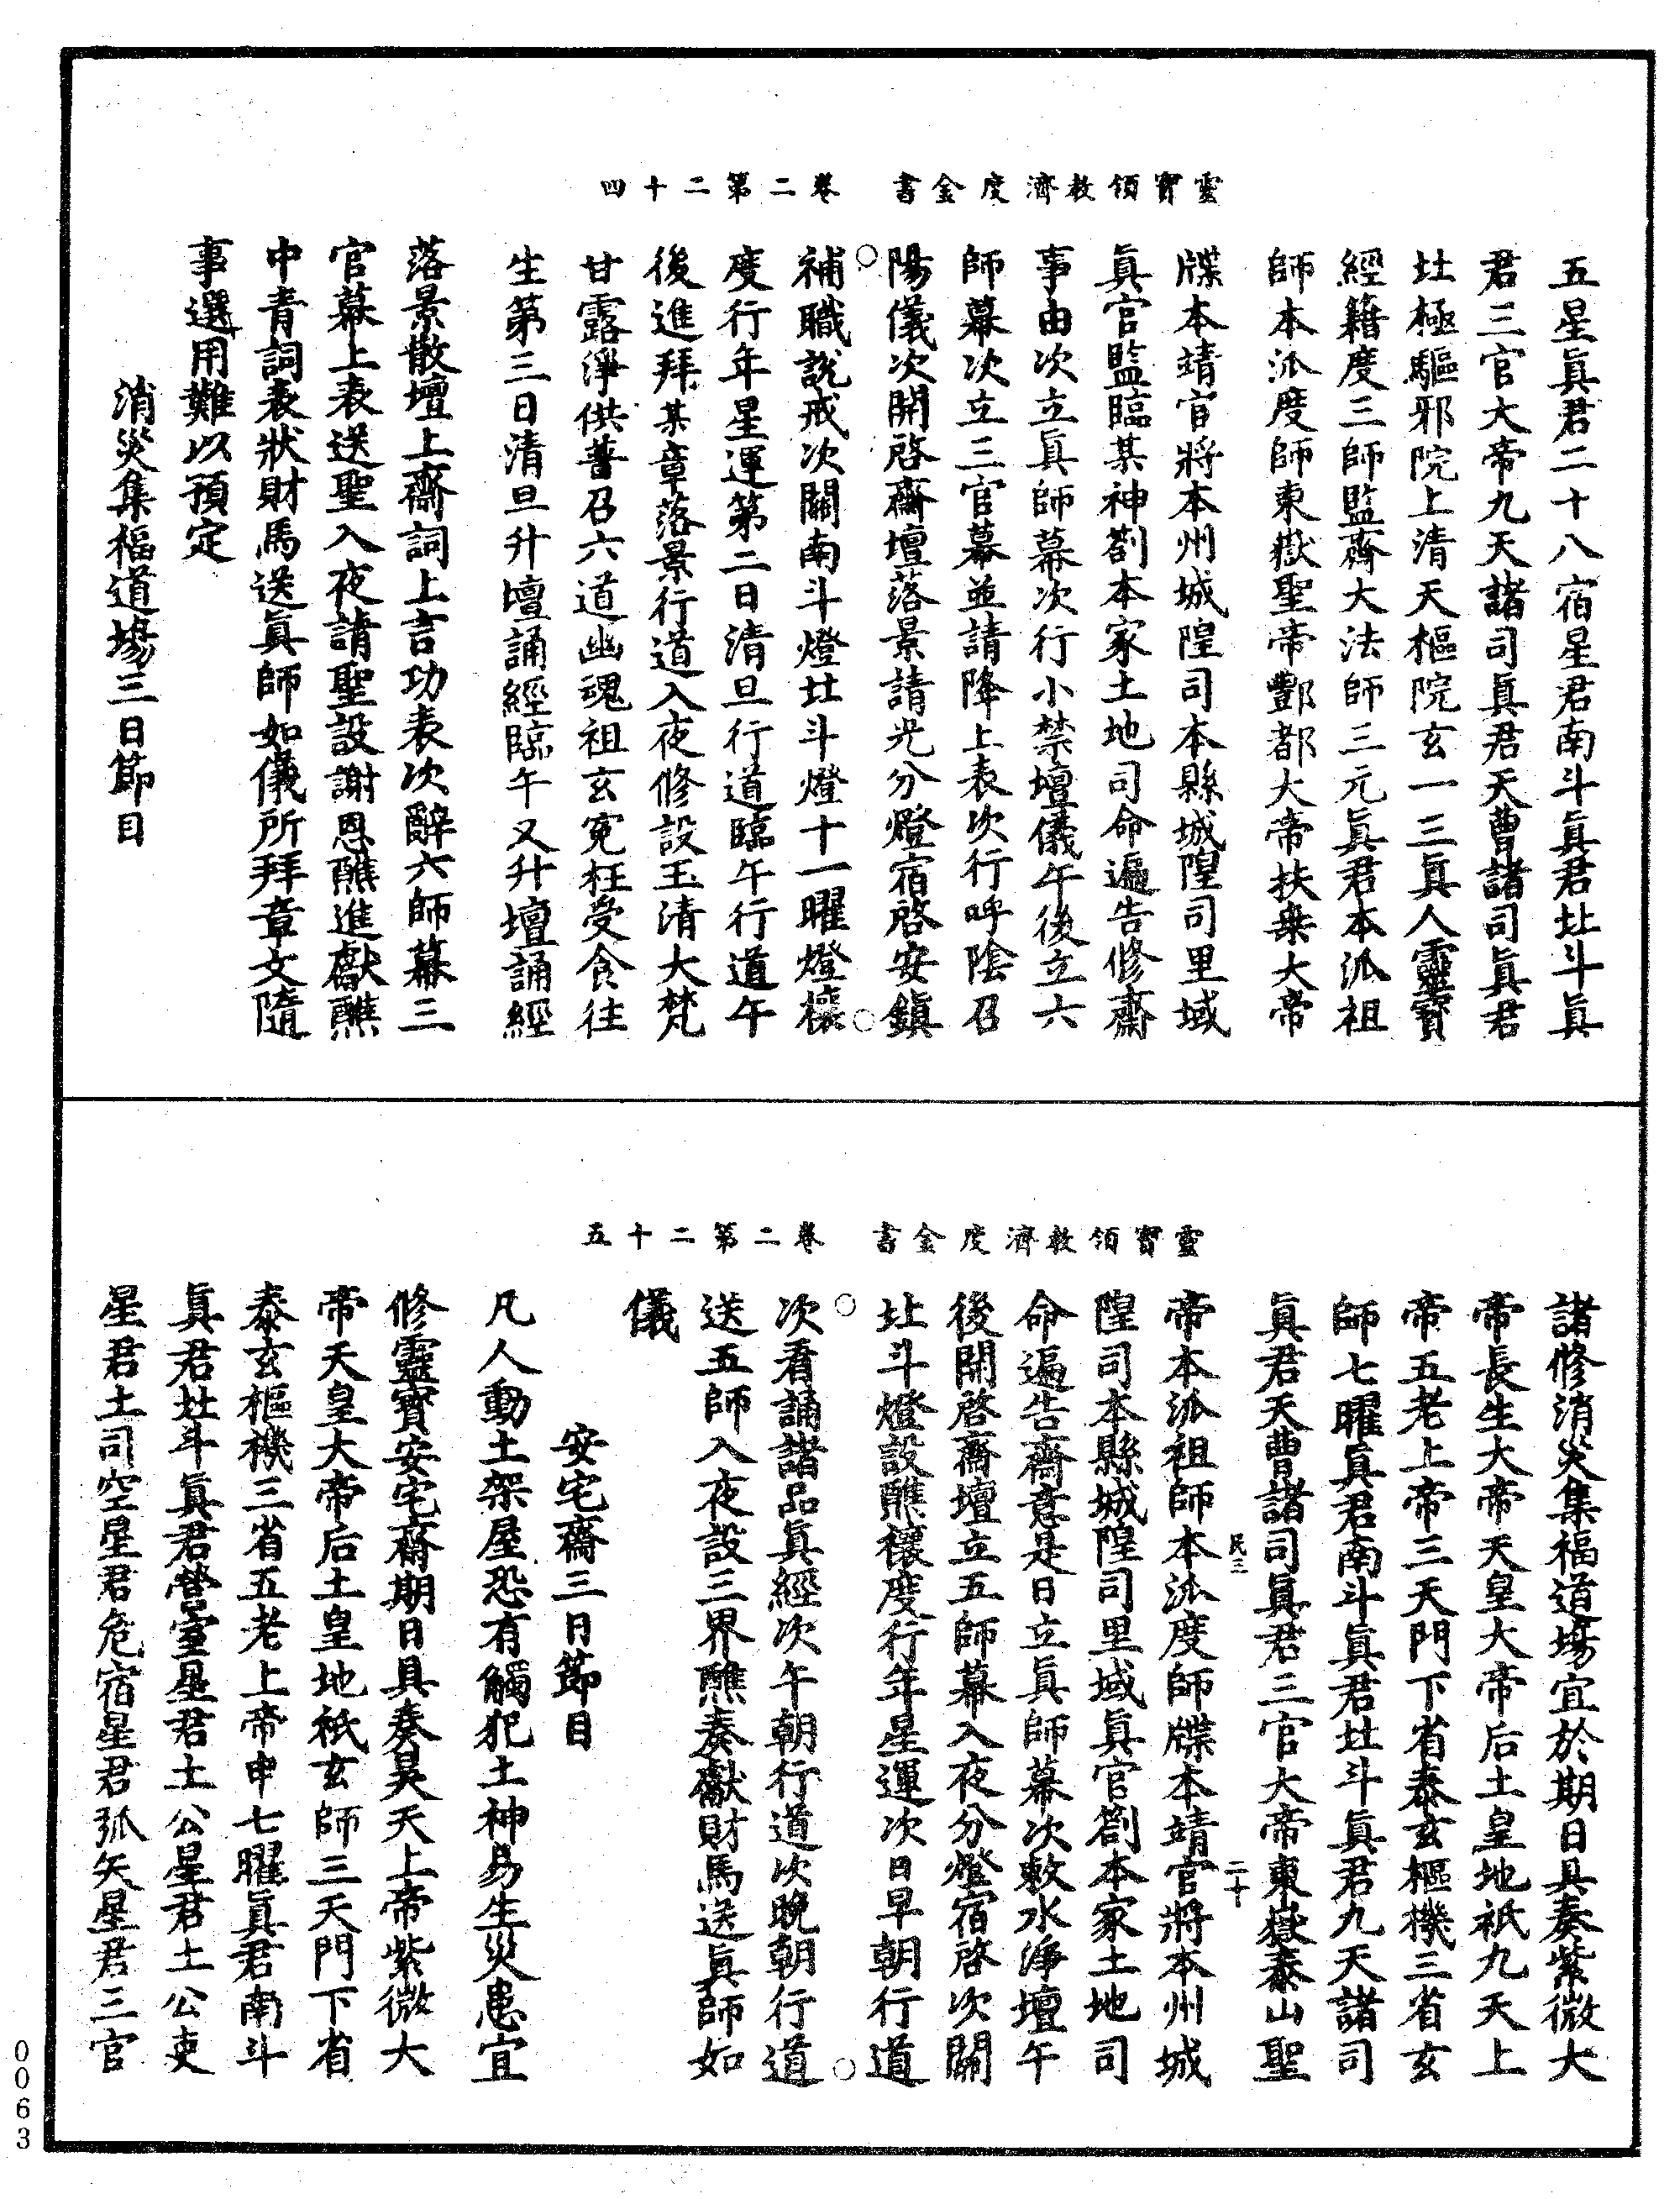 靈寶領教濟度金書　卷二第二十四
五星眞君二十八宿星君南斗眞君北斗眞
君三官大帝九天諸司眞君天曹諸司眞君
北極驅邪院上清天樞院玄一三眞人靈寶
經籍度三師監齋大法師三元眞君本派祖
師本派度師東嶽聖帝酆都大帝扶桒大帝
牒本靖官將本州城隍司本縣城隍司里域
眞官監臨某神劄本家土地司命遍告修齋
事由次立眞師幕次行小禁壇儀午後立六
師幕次立三官幕並請降上表次行呼陰召
陽儀次開啓齋壇落景請光分燈宿啓安鎮
補職說戒次關南斗燈北斗燈十一曜燈禳
度行年星運第二日清旦行道臨午行道午
後進拜某章落景行道入夜修設玉清大梵
甘露淨供普召六道幽魂祖玄冤枉受食往
生第三日清旦升壇誦經臨午又升壇誦經
落景散壇上齋詞上言功表次辭六師幕三
官幕上表送聖入夜請聖設謝恩醮進獻醮
中青詞表狀財馬送眞師如儀所拜章文隨
事選用難以預定
消災集福道場三日節目
靈寶領教濟度金書　卷二第二十五
諸修消災集福道場宜於期日具奏紫微大
帝長生大帝天皇大帝后土皇地祇九天上
帝五老上帝三天門下省泰玄樞機三省玄
師七曜眞君南斗眞君北斗眞君九天諸司
眞君天曹諸司眞君三官大帝東嶽泰山聖
民三　二十
帝本派祖師本派度師牒本靖官將本州城
隍司本縣城隍司里域眞官劄本家土地司
命遍告齋意是日立眞師幕次敕水淨壇午
後開啓齋壇立五師幕入夜分燈宿啓次關
北斗燈設醮禳度行年星運次日早朝行道
次看誦諸品眞經次午朝行道次晚朝行道
送五師入夜設三界醮奏獻財馬送眞師如
儀
安宅齋三日節目
凡人動土架屋恐有觸犯土神易生災患宜
修靈寶安宅齋期日具奏昊天上帝紫微大
帝天皇大帝后土皇地祇玄師三天門下省
泰玄樞機三省五老上帝申七曜眞君南斗
眞君北斗眞君營室星君土公星君土公吏
星君土司空星君危宿星君弧矢星君三官
0063